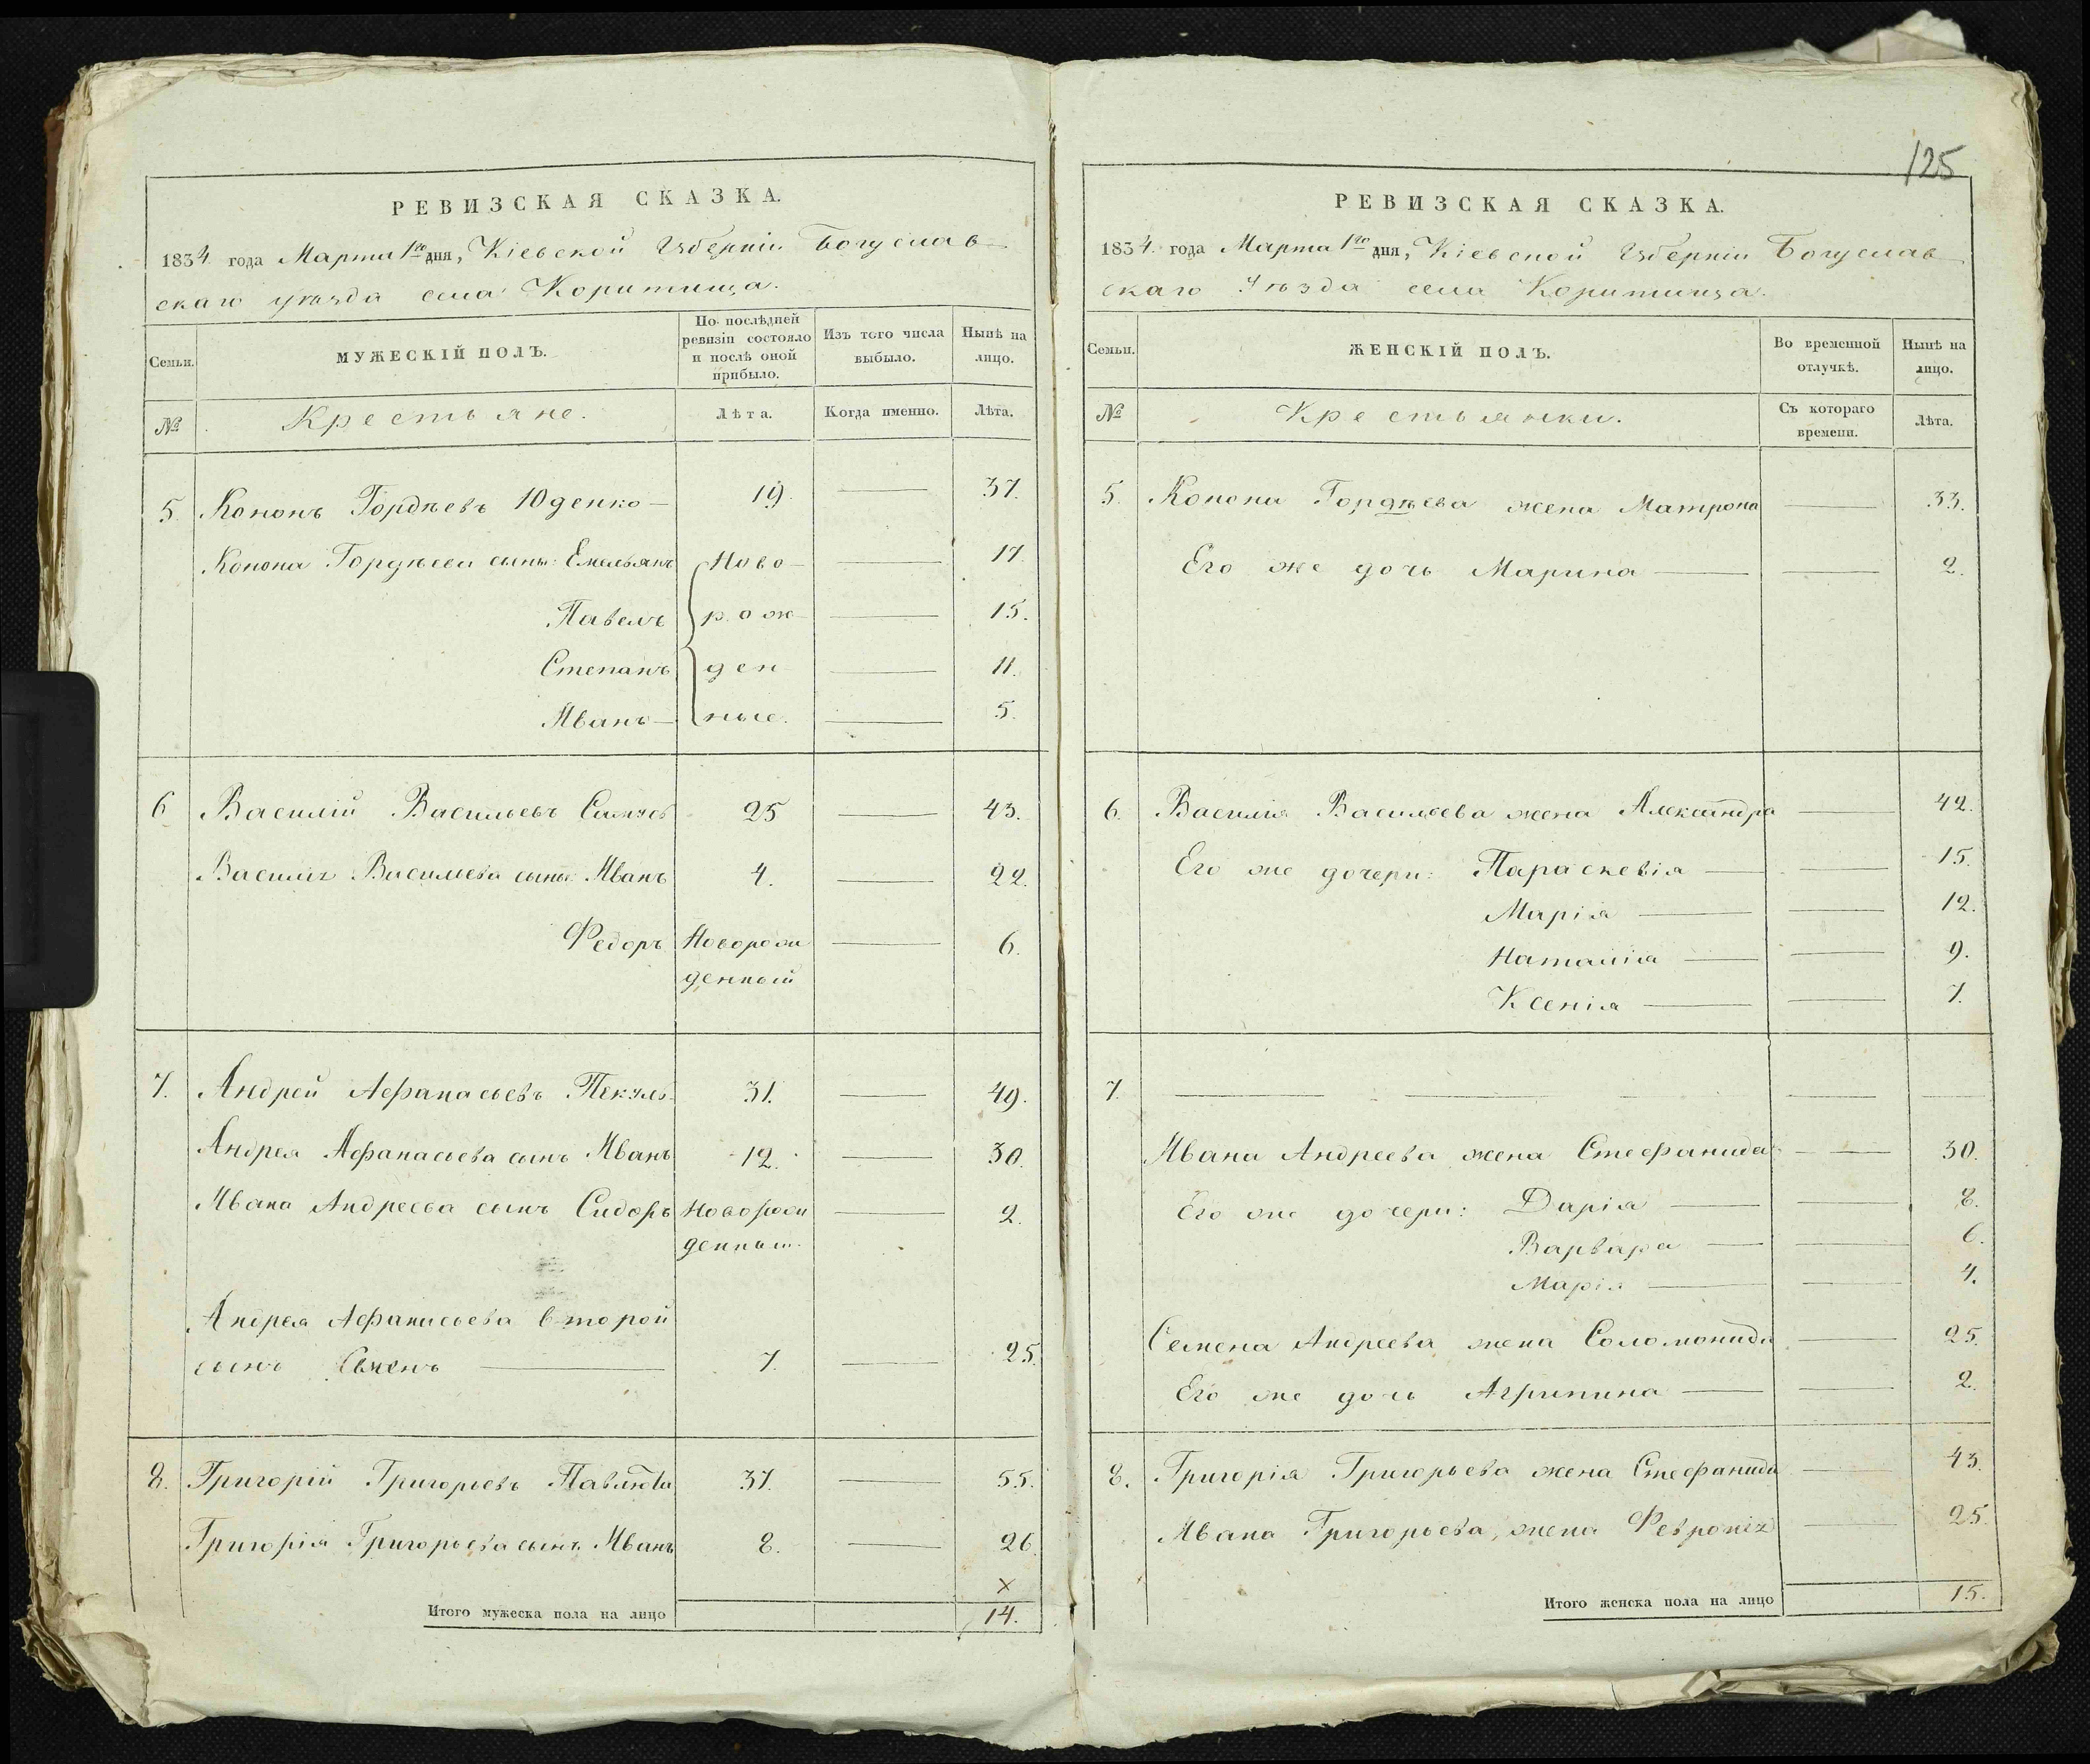 РЕВИЗСКАЯ СКАЗКА.
1834 года Марта 1го дня, Кіевской Губерніи Богуслав-
скаго уѣзда села Коритища.
Семьи.
МУЖЕСКІЙ ПОЛЪ.
По послѣдней ревизіи состояло и послѣ оной прибыло.
Изъ того числа выбыло.
Нынѣ на лицо.
№
Крестьяне.
Лѣта.
Когда именно.
Лѣта.
5. Кононъ Гордѣевъ Юденко — 19. — 37.
Конона Гордѣева сыны: Емельянъ Ново- — 17.
Павелъ рож- — 15.
Степанъ ден- — 11.
Иванъ — ные. — 5.
6 Василій Васильевъ 25 — 43.
Василія Васильева сыны: Иванъ 4. — 22.
Федоръ Новорож — 6.
денный
7. Андрей Афанасьевъ Пекуль 31. — 49.
Андрея Афанасьева сынъ Иванъ 12. — 30.
Ивана Андреева сынъ Сидоръ Новорож — 2.
денный.
Андрея Афанасьева второй
сынъ Семенъ — 7. — 25.
8. Григорій Григорьевъ 37. — 55.
Григорія Григорьева сынъ Иванъ 8. — 26.
×
Итого мужеска пола на лицо 14.
125
РЕВИЗСКАЯ СКАЗКА.
1834. года Марта 1го дня, Кіевской Губерніи Богуслав
скаго Уѣзда села Коритища.
Семьи.
ЖЕНСКІЙ ПОЛЪ.
Во временной отлучкѣ.
Нынѣ на лицо.
№
Крестьянки.
Съ котораго времени.
Лѣта.
5. Конона Гордѣева жена Матрона — 33.
Его же дочь Марина — — 2.
6. Василія Васильева жена Александра — 42.
Его же дочери: Параскевія — — 15.
Марія — — 12.
Наталія — — 9.
Ксенія — — 7.
7. — — — — —
Ивана Андреева жена Стефанида — — 30.
Его же дочери: Дарія — — 8.
Варвара — — 6.
Марія — — 4.
Семена Андреева жена Соломонида — 25.
Его же дочь Агрипина — — 2.
8. Григорія Григорьева жена Стефанида — 43.
Ивана Григорьева, жена Февронія — 25.
Итого женска пола на лицо 15.